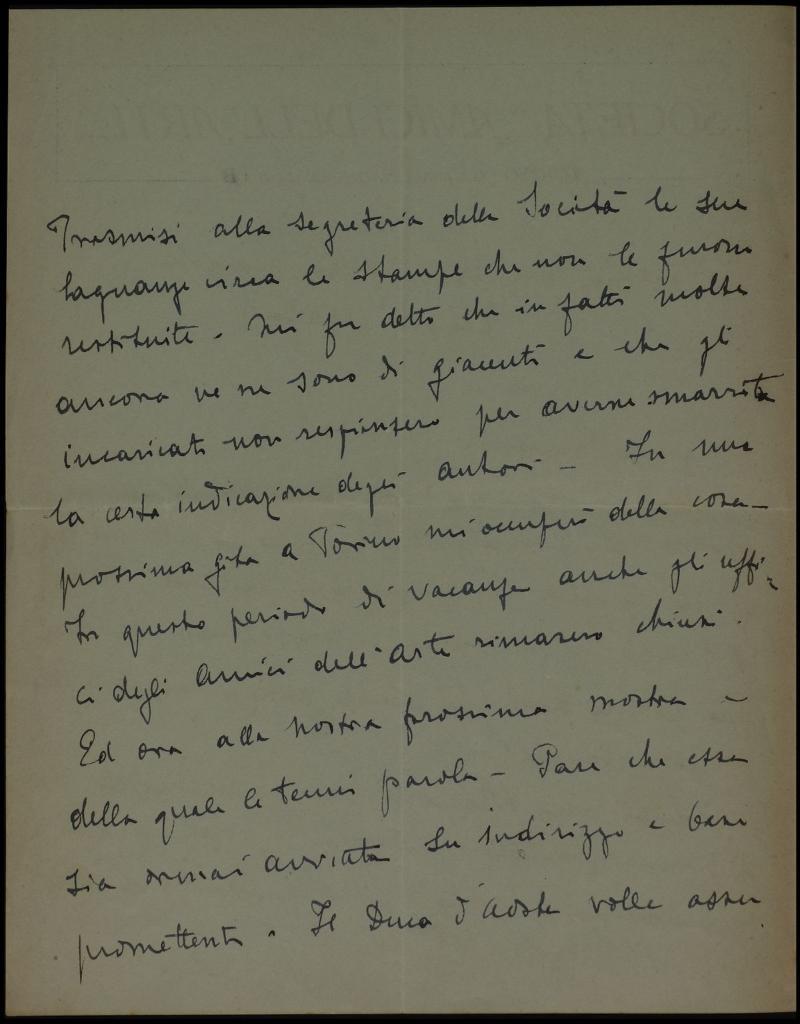 SOCIETÀ "AMICI DELL'ARTE"
Trasmisi alla segreteria della Società le sue
lagnanze circa le stampe che non le furono
restituite. Mi fu detto che in fatti molte
ancora ve ne sono di giacenti e che gli
incaricati non respinsero per averne smarrita
la certa indicazione degli autori - In una
prossima gita a Torino mi occuperò della cosa -
In questo periodo di vacanze anche gli uffi-
ci degli Amici dell'Arte rimasero chiusi.
Ed ora alla nostra prossima mostra -
della quale le tenni parola - Pare che essa
sia ormai avviata su indirizzo e base
promettenti. Il Duca d'Aosta volle esser